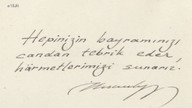 Hepinizin bayramınızı
candan tebrik eder,
hürmetlerimizi sunarız.